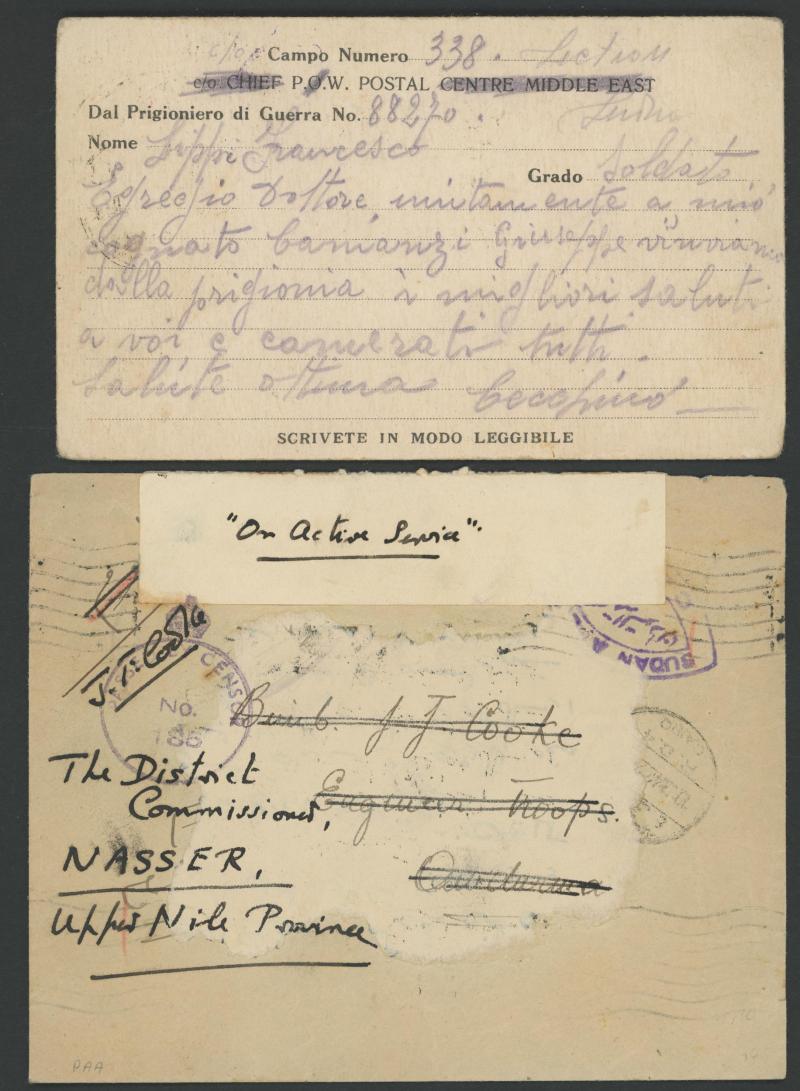 Campo Numero 338. Section
c/o CHIEF P.O.W. POSTAL CENTRE MIDDLE EAST
Dal Prigioniero di Guerra No. 88270.
Nome Lippi Francesco
Grado Soldato
Egregio Dottore unitamente a mio
cognato Giuseppe
dalla prigionia i migliori saluti
a voi e camerati tutti.
Salute ottima Cecchino
SCRIVETE IN MODO LEGGIBILE
"On Active Service".
J.T. Cooke
CENSOR
No.
SUDAN
CAIRO
J T Cooke
Engineer Troops.
The District
Commissioner,
NASSER,
Upper Nile Province
PAA